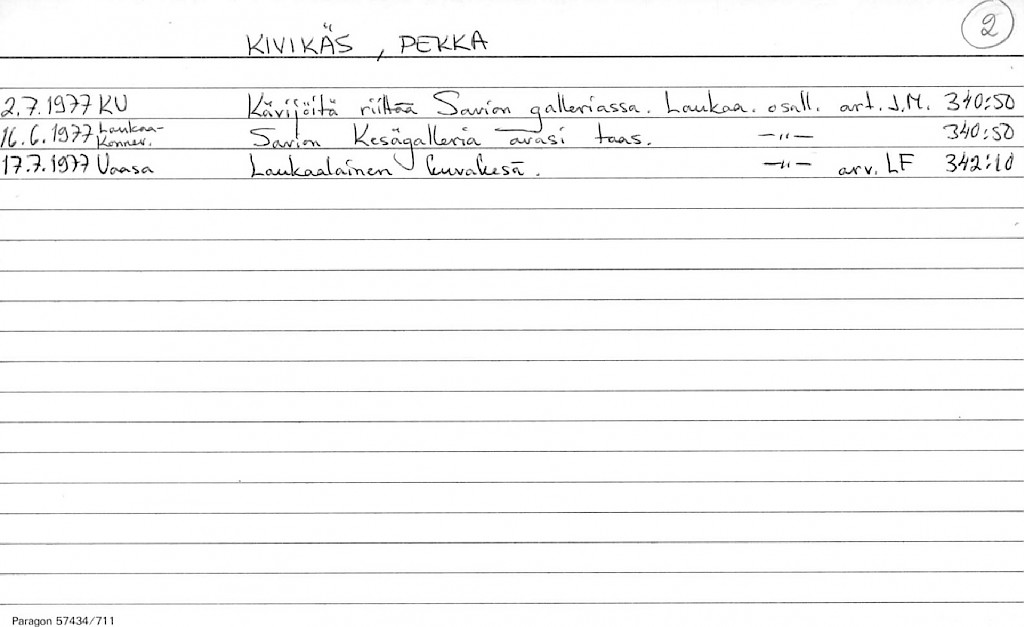 2
KIVIKÄS, PEKKA
2.7.1977 KU Kävijöitä riittää Savion galleriassa. Laukaa. osall. art. J.M. 340:50
16.6.1977 Laukaa-Konnev. Savion Kesägalleria avasi taas. —"— 340:50
17.7.1977 Vaasa Laukaalainen kuvakesä. —"— arv. LF 342:10
Paragon 57434/711